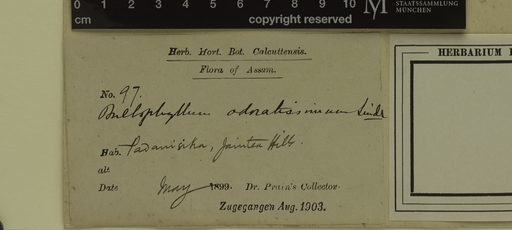 0 1 2 3 4 5 6 7 8 9 10
cm
copyright reserved
M
STAATSSAMMLUNG
MÜNCHEN
HERBARIUM
Herb. Hort. Bot. Calcuttensis.
Flora of Assam.
No. 97.
Bulbophyllum odoratissimum Lindl
Hab. Jaintea Hills.
alt
Date May 1899. Dr. Prain's Collector.
Zugegangen Aug. 1903.